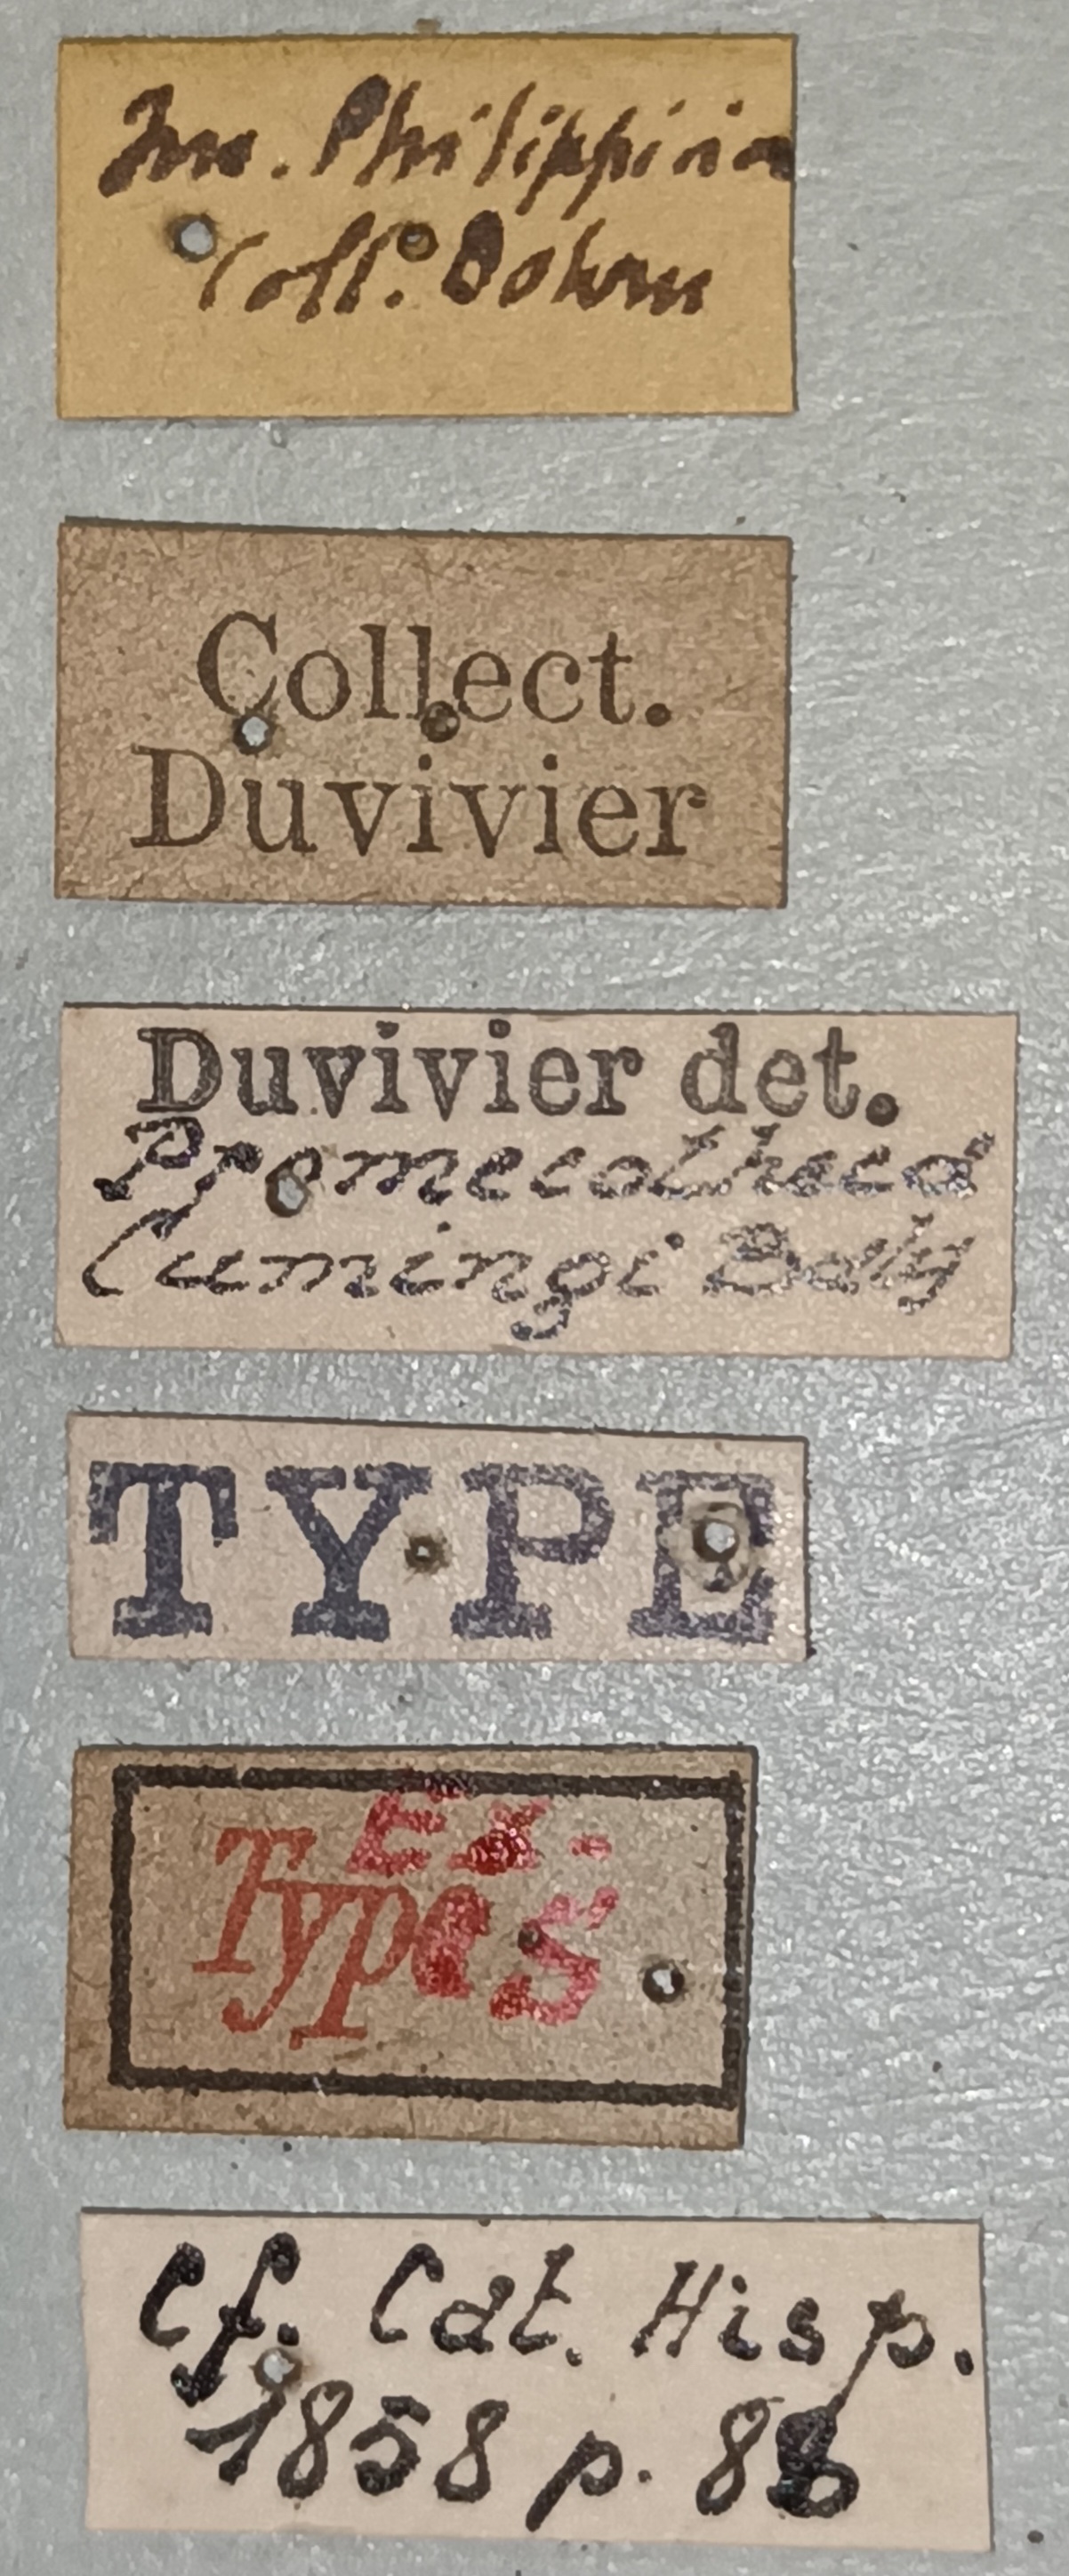 Philippina
Coll. Dohrn
Collect.
Duvivier
Duvivier det.
Promecotheca
Cumingi Baly
TYPE
Ex.
Types
Cf. Cat. Hisp.
1858 p. 88